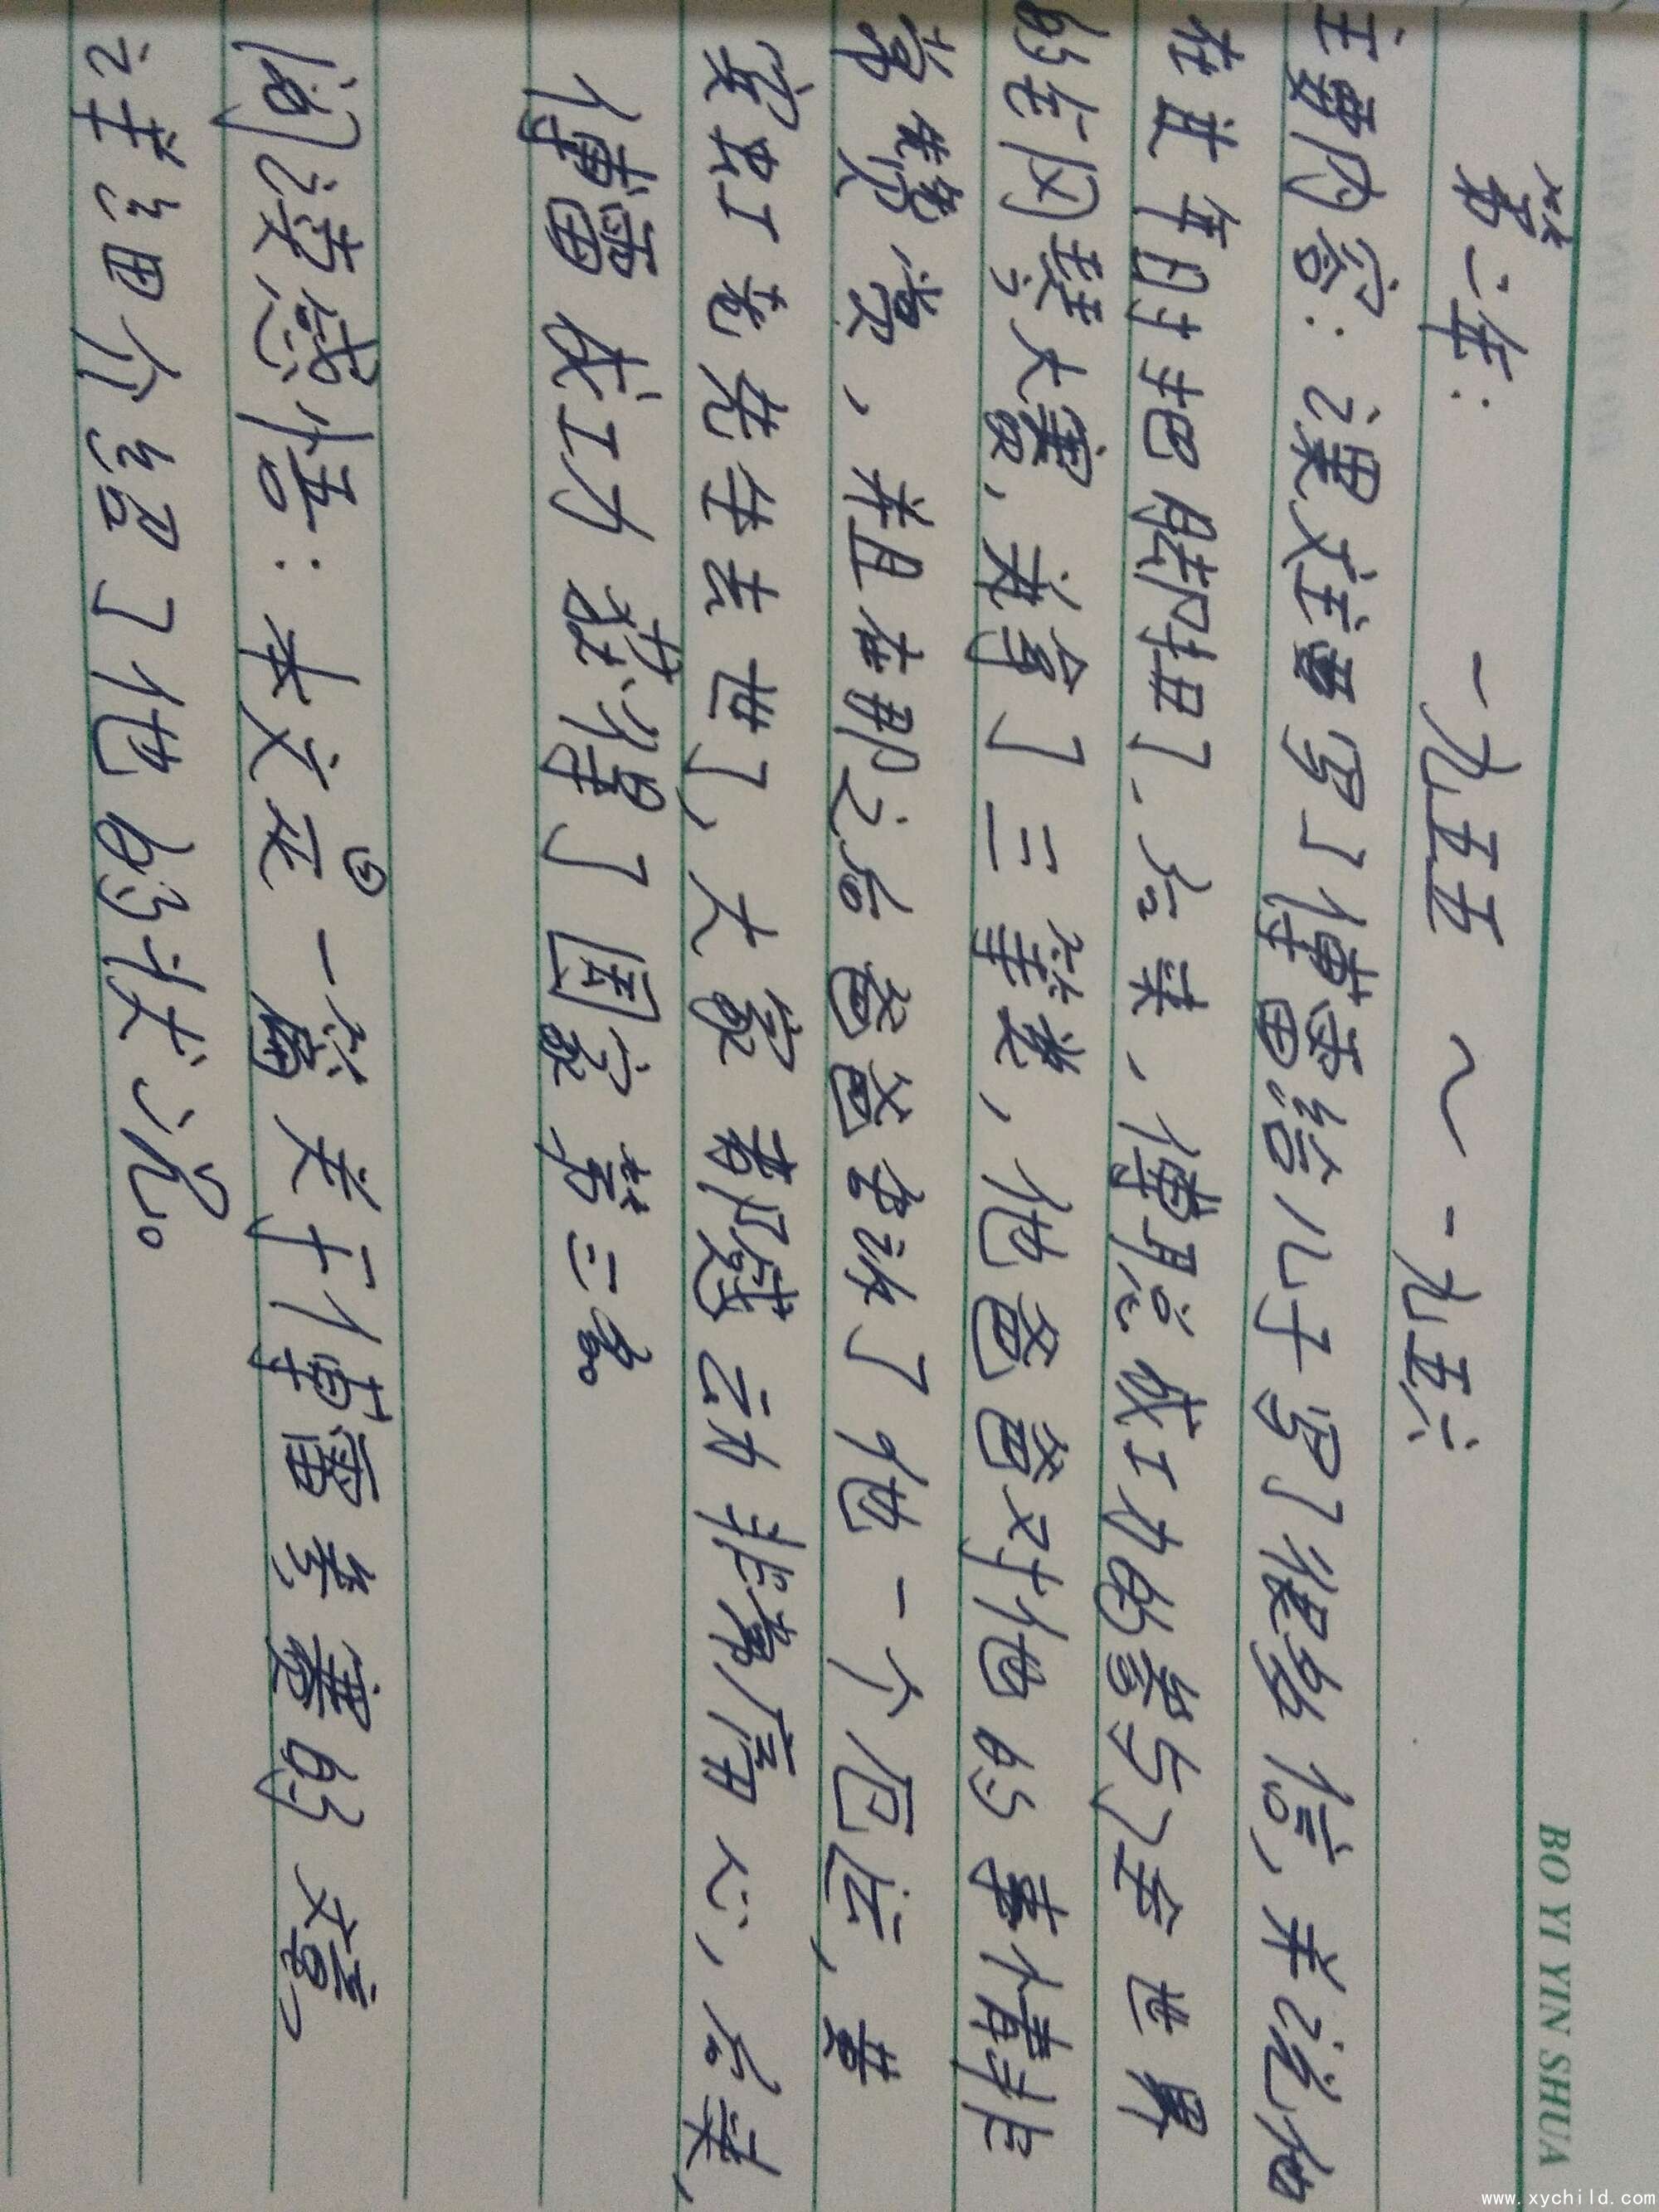 BO YI YIN SHUA
第二年: 一九五五 ~ 一九五六
主要内容:课文主要写了傅雷给儿子写了很多信,并说他
在过年时把腿扭了、后来、傅聪成功的参与了全世界
的钢琴大赛,并拿了三等奖,他爸爸对他的事情非
常赞赏,并且在那之后爸爸告诉了他一个厄运,黄
宾虹老先生去世了,大家都感动非常痛心,后来,
傅雷成功获得了国家第二名。
阅读感悟:本文是一篇关于傅雷参赛的文章,
详细介绍了他的状况。
www.xychild.com